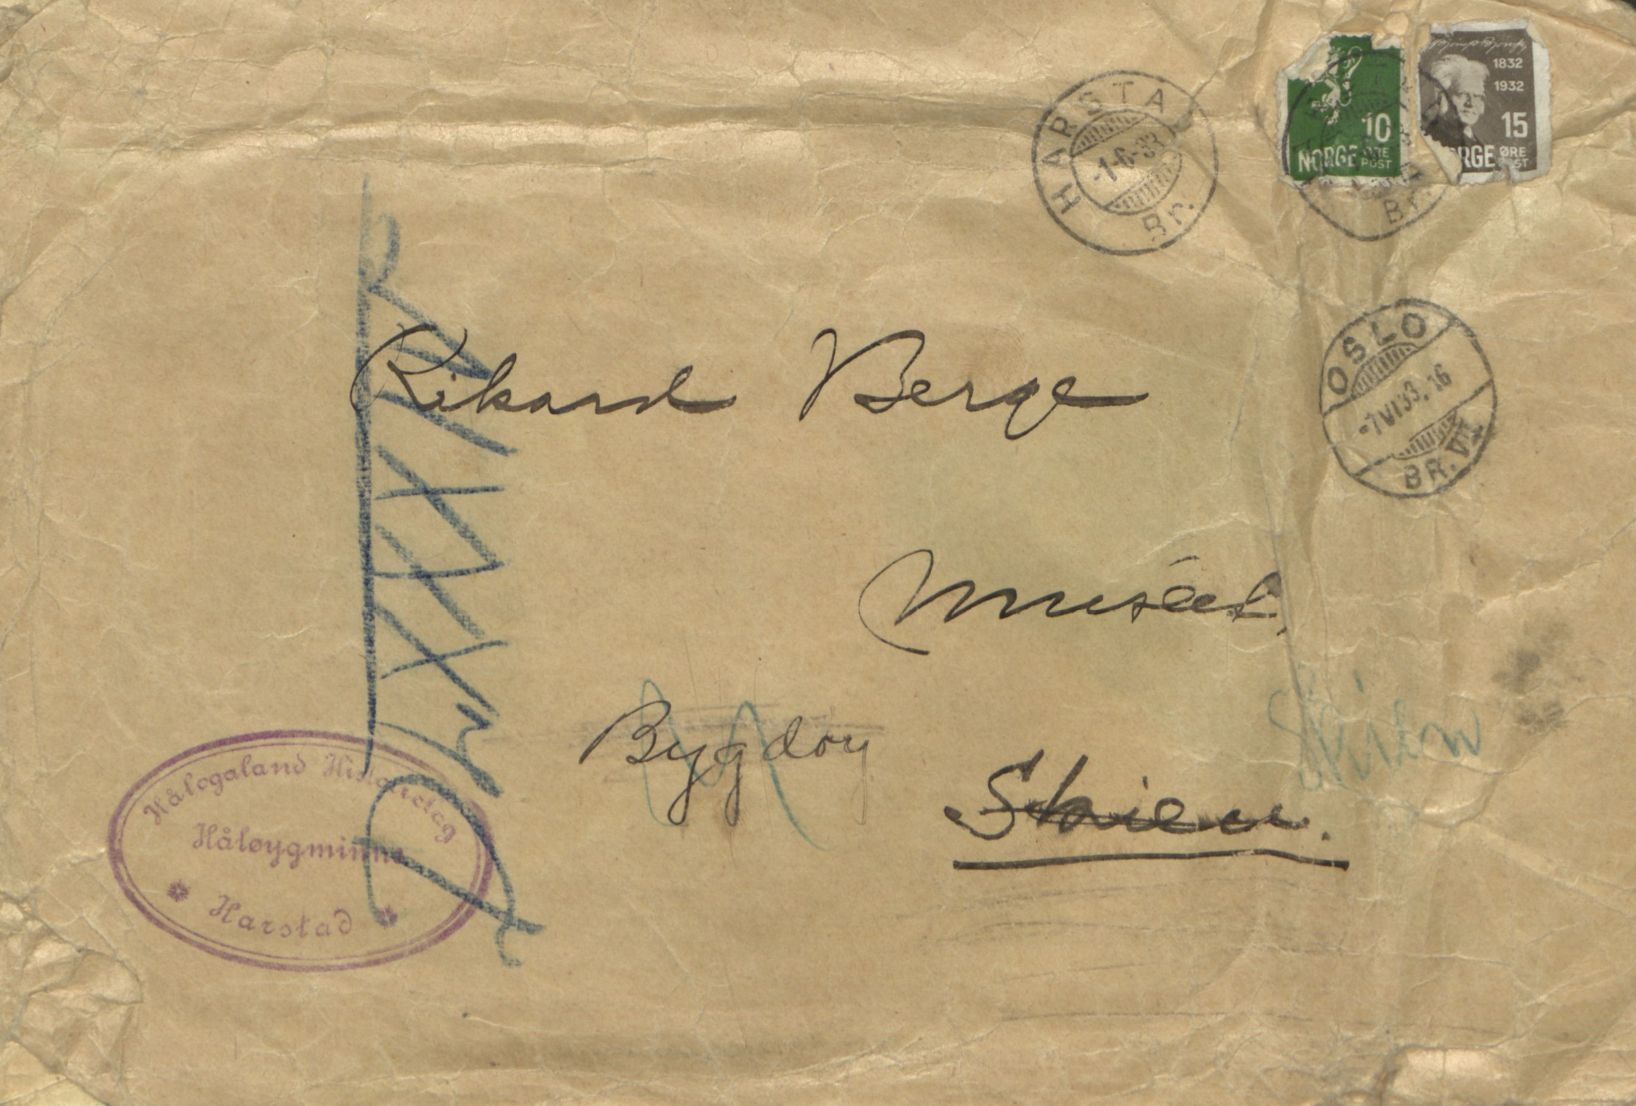 HARSTAD
-1-6-33
Br.
1832
1932
10
NORGE ØRE
POST
15
RGE ØRE
POST
Br.
OSLO
-7 VI 33. 16
BR. VI
Rikard Berge
Museet,
Bygdøy
Skien.
Skien
Hålogaland Historielag
Håløygminne
Harstad